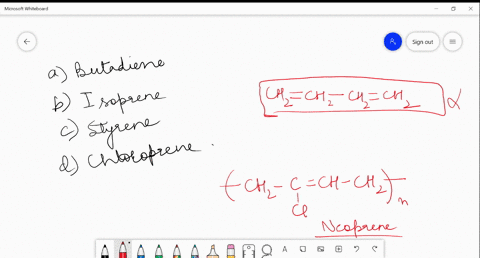 Microsoft Whiteboard
Sign out
a) Butadiene
b) Isoprene
c) Styrene
d) Chloroprene
CH2=CH2-CH2=CH2
CH2-C=CH-CH2
Cl
n
Neoprene